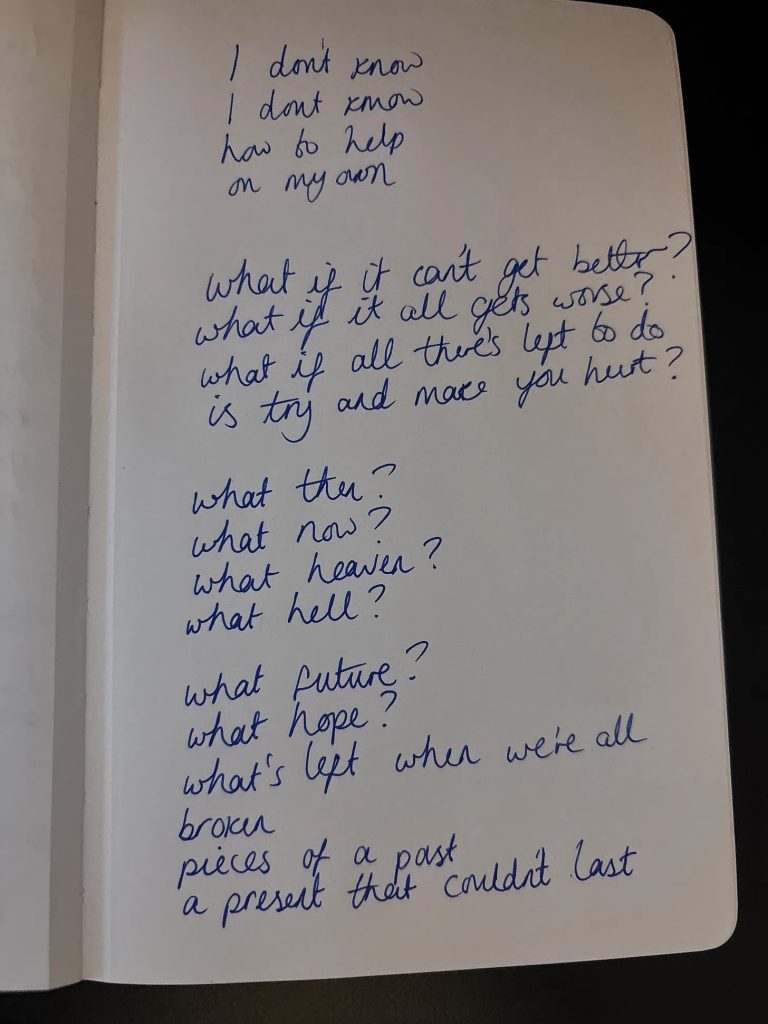 I don't know
I dont know
how to help
on my own
what if it can't get better?
what if it all gets worse?
what if all there's left to do
is try and make you hurt?
what then?
what now?
what heaven?
what hell?
what future?
what hope?
what's left when we're all
broken
pieces of a past
a present that couldn't last